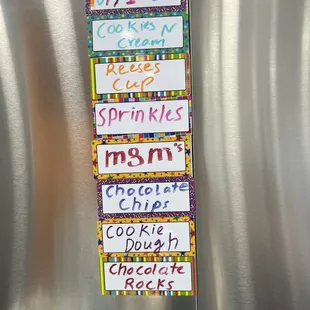 Cookies N
Cream
Reeses
Cup
Sprinkles
m&m's
Chocolate
Chips
Cookie
Dough
Chocolate
Rocks